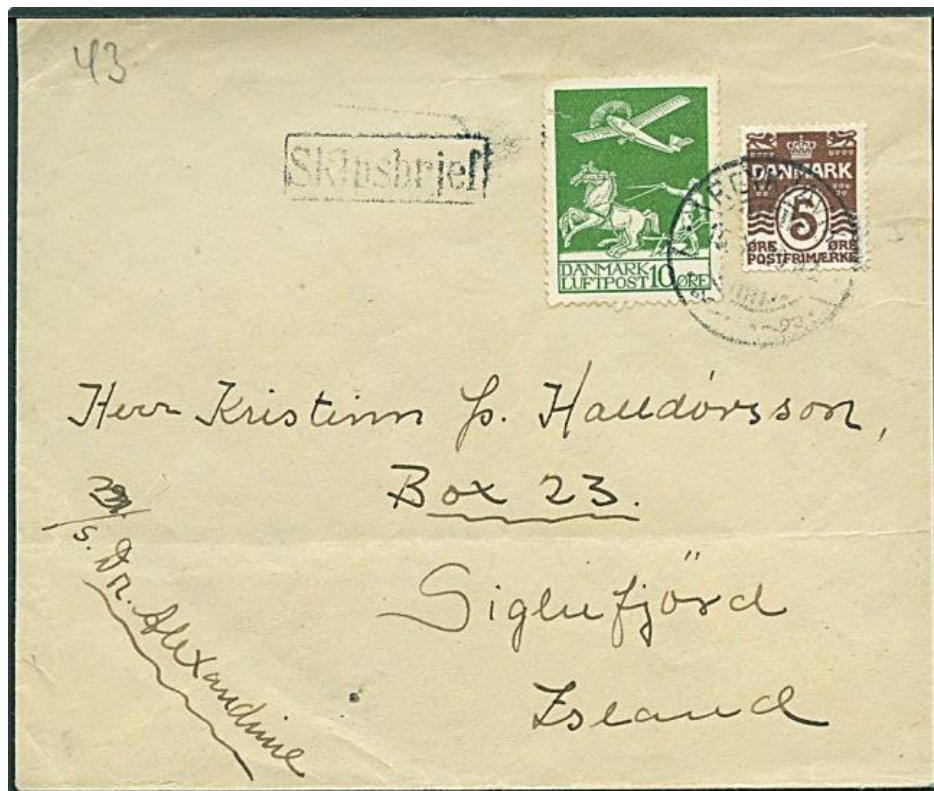 43
Skipsbrjef
DANMARK
LUFTPOST 10 ØRE
DANMARK
5
ØRE ØRE
POSTFRIMÆRKE
Herr Kristinn Þ. Halldórsson,
Box 23.
Siglufjörd
Island
s. Dr. Alexandrine